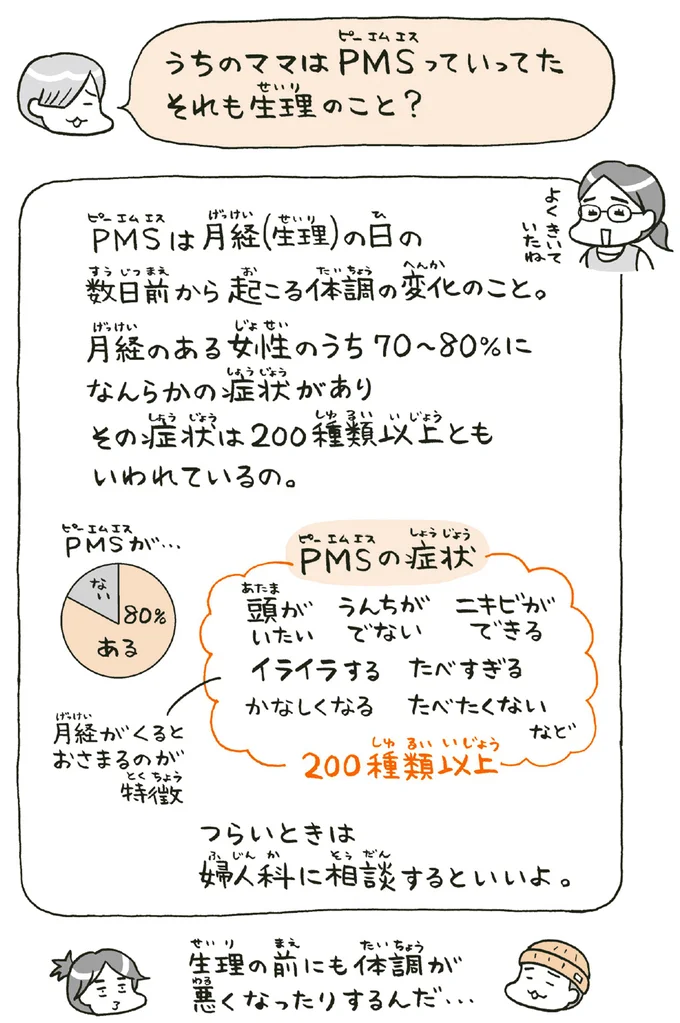 うちのママはPMSっていってた
それも生理のこと？
よくきいて
いたね
PMSは月経(生理)の日の
数日前から起こる体調の変化のこと。
月経のある女性のうち70〜80%に
なんらかの症状があり
その症状は200種類以上とも
いわれているの。
PMSが…
ない
80%
ある
PMSの症状
頭が
いたい
うんちが
でない
ニキビが
できる
イライラする
たべすぎる
かなしくなる
たべたくない
など
200種類以上
月経がくると
おさまるのが
特徴
つらいときは
婦人科に相談するといいよ。
生理の前にも体調が
悪くなったりするんだ…